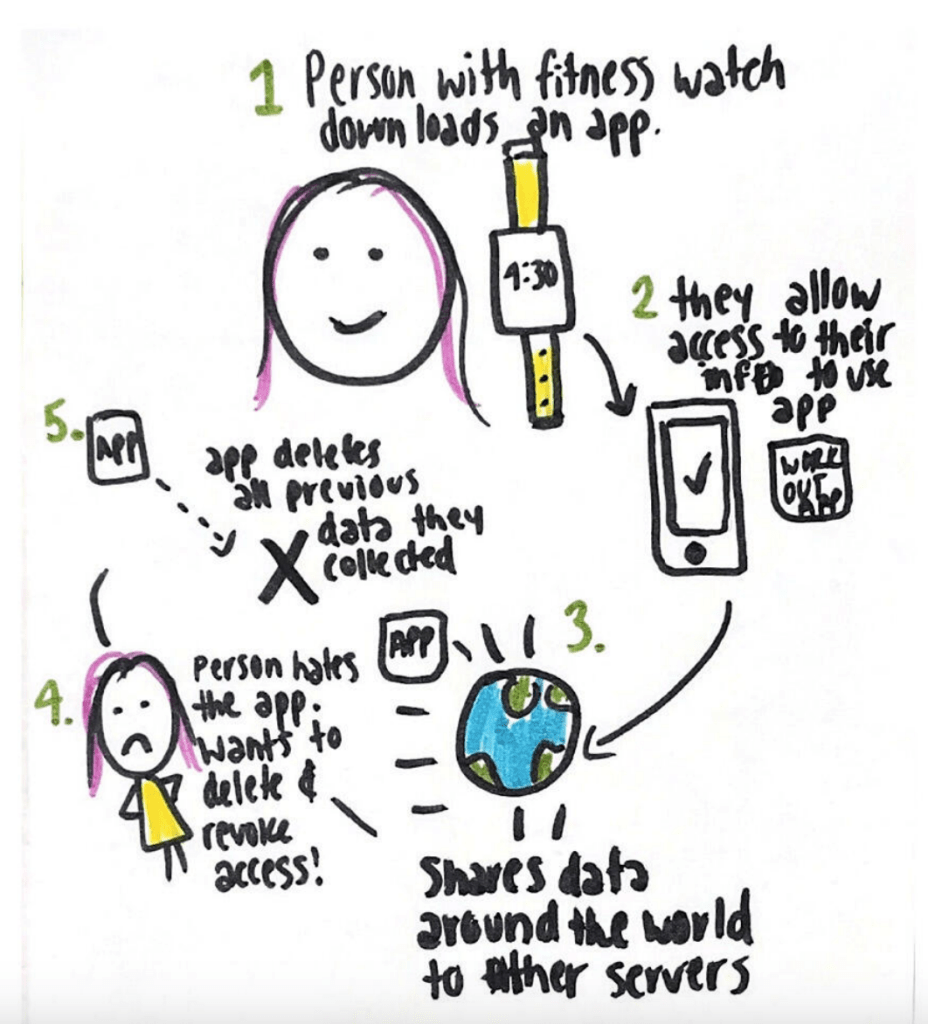 1 Person with fitness watch
downloads an app.
4:30
2 they allow
access to their
info to use
app
WORK
OUT
APP
3.
APP
Shares data
around the world
to other servers
4.
Person hates
the app.
wants to
delete &
revoke
access!
5.
APP
app deletes
all previous
data they
collected
X